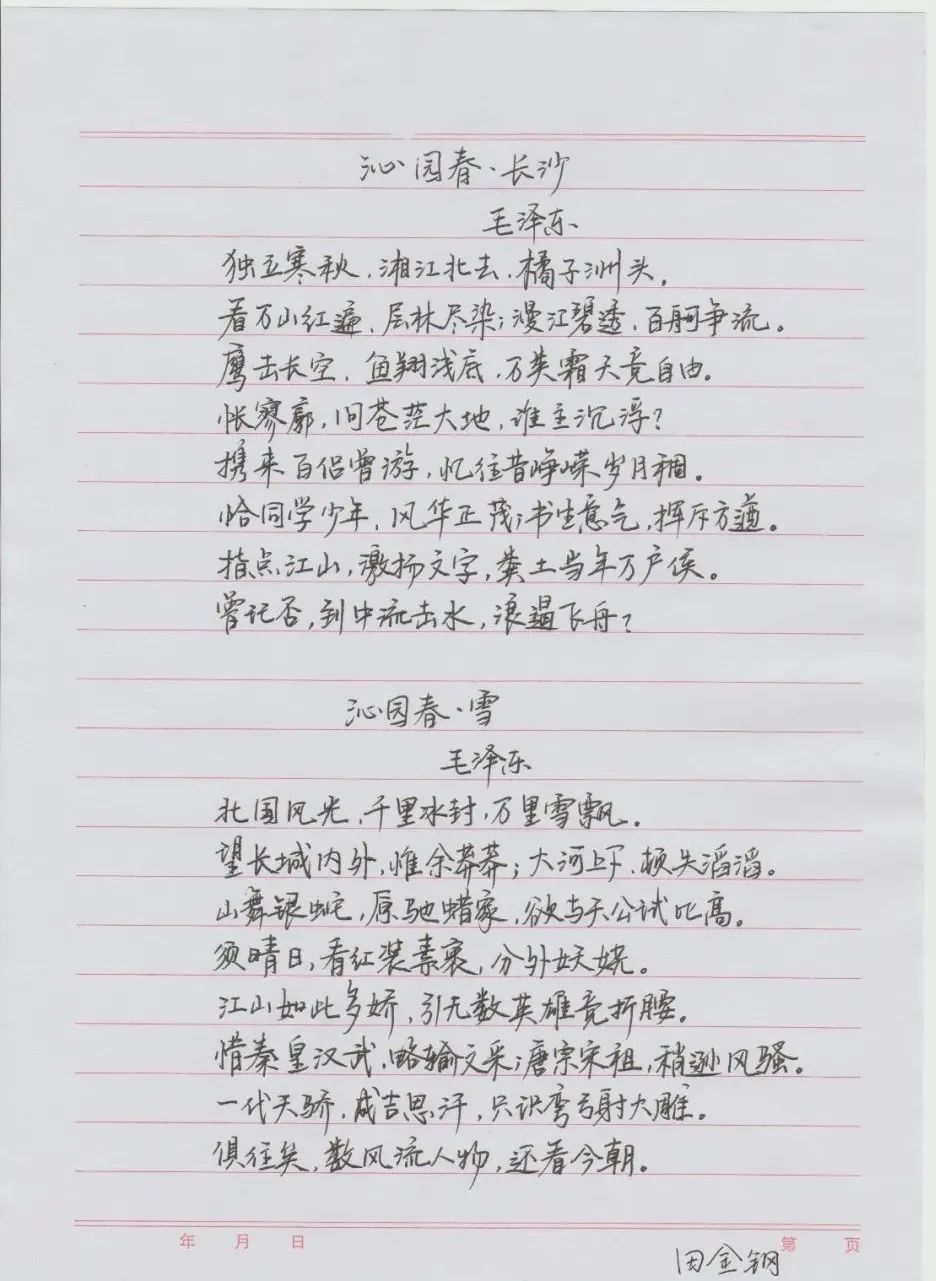 沁园春·长沙
毛泽东
独立寒秋，湘江北去，橘子洲头。
看万山红遍，层林尽染；漫江碧透，百舸争流。
鹰击长空，鱼翔浅底，万类霜天竞自由。
怅寥廓，问苍茫大地，谁主沉浮？
携来百侣曾游，忆往昔峥嵘岁月稠。
恰同学少年，风华正茂；书生意气，挥斥方遒。
指点江山，激扬文字，粪土当年万户侯。
曾记否，到中流击水，浪遏飞舟？
沁园春·雪
毛泽东
北国风光，千里冰封，万里雪飘。
望长城内外，惟余莽莽；大河上下，顿失滔滔。
山舞银蛇，原驰蜡象，欲与天公试比高。
须晴日，看红装素裹，分外妖娆。
江山如此多娇，引无数英雄竞折腰。
惜秦皇汉武，略输文采；唐宗宋祖，稍逊风骚。
一代天骄，成吉思汗，只识弯弓射大雕。
俱往矣，数风流人物，还看今朝。
年 月 日 第 页
田金钢